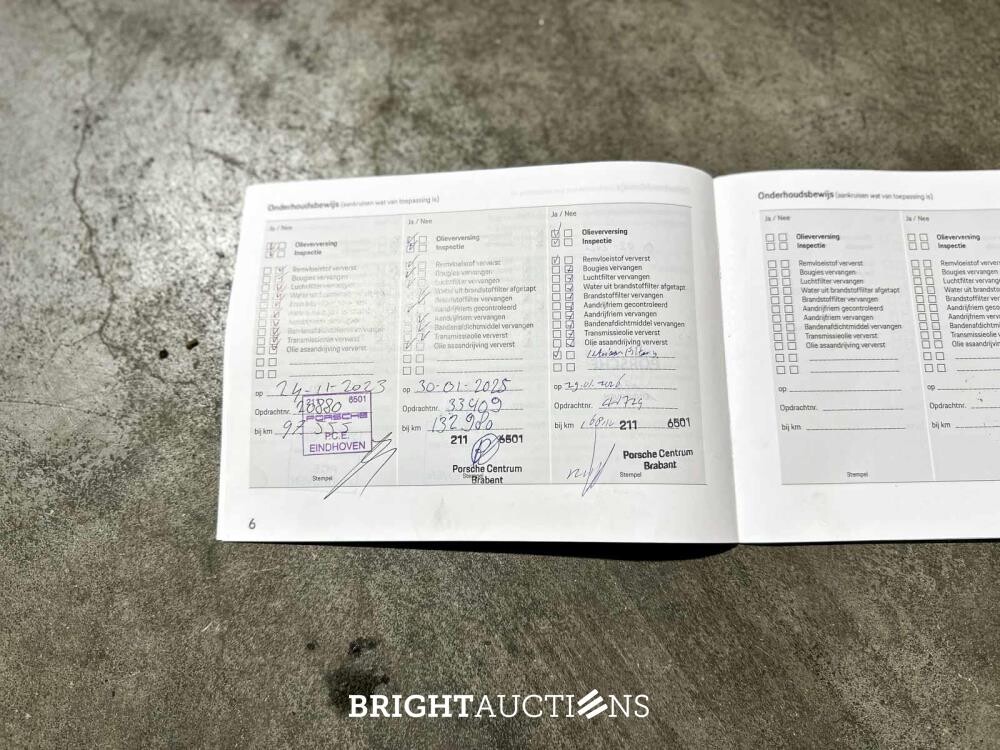 Onderhoudsbewijs (aankruisen wat van toepassing is)
Ja / Nee
Olieverversing
Inspectie
Remvloeistof ververst
Bougies vervangen
Luchtfilter vervangen
Transmissieolie ververst
Olie asaandrijving ververst
op 24-11-2023
Opdrachtnr. 20880
bij km
6501
PORSCHE
P.C.E.
EINDHOVEN
Stempel
Ja / Nee
Olieverversing
Inspectie
Remvloeistof ververst
Bougies vervangen
Luchtfilter vervangen
Water uit brandstoffilter afgetapt
Brandstoffilter vervangen
Aandrijfriem gecontroleerd
Aandrijfriem vervangen
Bandenafdichtmiddel vervangen
Transmissieolie ververst
Olie asaandrijving ververst
op 30-01-2025
Opdrachtnr. 33409
bij km 132980
211 6501
Porsche Centrum
Brabant
Stempel
Ja / Nee
Olieverversing
Inspectie
Remvloeistof ververst
Bougies vervangen
Luchtfilter vervangen
Water uit brandstoffilter afgetapt
Brandstoffilter vervangen
Aandrijfriem gecontroleerd
Aandrijfriem vervangen
Bandenafdichtmiddel vervangen
Transmissieolie ververst
Olie asaandrijving ververst
op 29.01.2026
Opdrachtnr.
bij km
211 6501
Porsche Centrum
Brabant
Stempel
6
Onderhoudsbewijs (aankruisen wat van toepassing is)
Ja / Nee
Olieverversing
Inspectie
Remvloeistof ververst
Bougies vervangen
Luchtfilter vervangen
Water uit brandstoffilter afgetapt
Brandstoffilter vervangen
Aandrijfriem gecontroleerd
Aandrijfriem vervangen
Bandenafdichtmiddel vervangen
Transmissieolie ververst
Olie asaandrijving ververst
op
Opdrachtnr.
bij km
Stempel
Ja / Nee
Olieverversing
Inspectie
Remvloeistof
Bougies vervan
Luchtfilter
Water uit brands
Brandstoffilter
Aandrijfriem
Aandrijfriem
Bandenafdicht
Transmissieolie
Olie asaandrijv
op
Opdrachtnr.
bij km
BRIGHTAUCTIONS